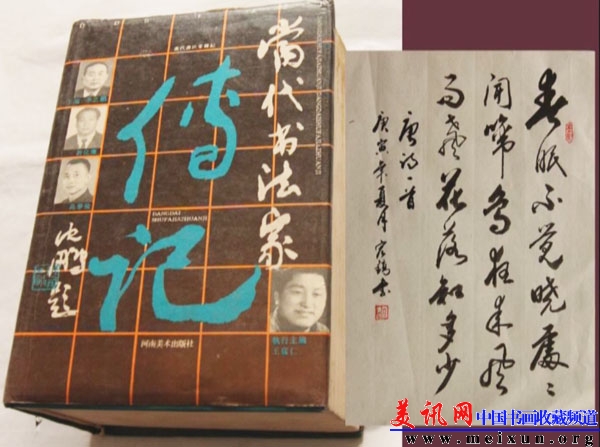 當代书法家
傳记
沈鹏题
DANGDAI
SHUFAJIAZHUANJI
执行主编
河南美术出版社
春眠不觉晓处〻
闻啼鸟夜来风
雨声花落知多少
唐诗一首
庚寅年夏月
美讯网 中国书画收藏频道
www.meixun.org